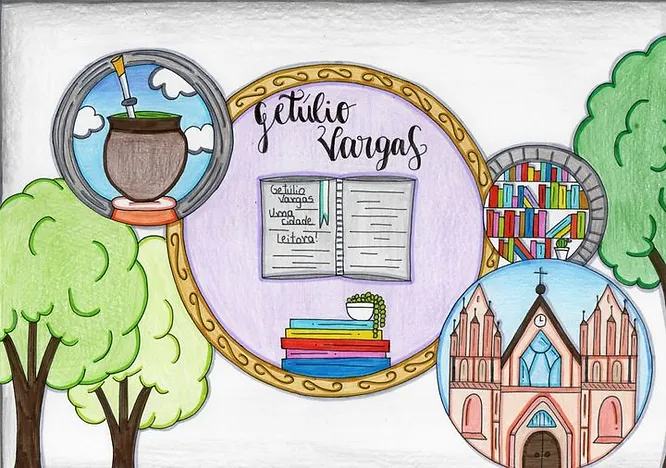 Getúlio
Vargas
Getúlio
Vargas
Uma
cidade
Leitora!